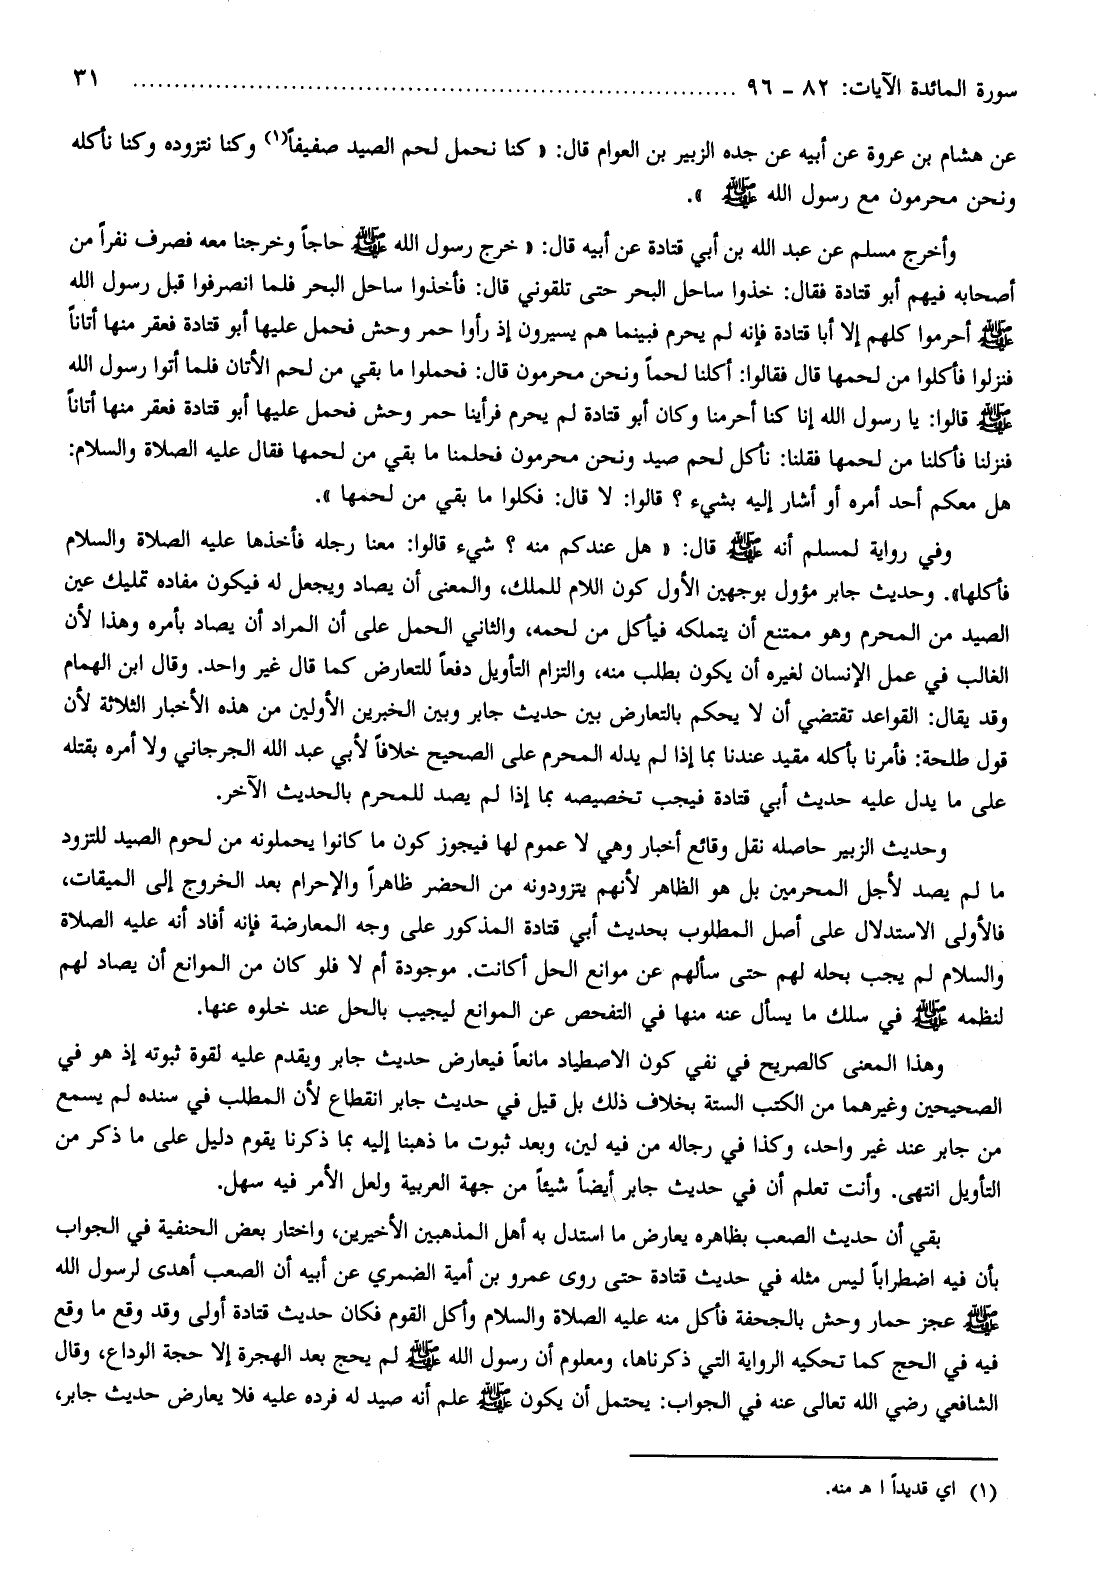 سورة المائدة الآيات: ٨٢ ـ ٩٦ ........................................................................ ٣١
عن هشام بن عروة عن أبيه عن جده الزبير بن العوام قال: « كنا نحمل لحم الصيد صفيفاً(١) وكنا نتزوده وكنا نأكله
ونحن محرمون مع رسول الله ﷺ ».
وأخرج مسلم عن عبد الله بن أبي قتادة عن أبيه قال: « خرج رسول الله ﷺ حاجاً وخرجنا معه فصرف نفراً من
أصحابه فيهم أبو قتادة فقال: خذوا ساحل البحر حتى تلقوني قال: فأخذوا ساحل البحر فلما انصرفوا قبل رسول الله
ﷺ أحرموا كلهم إلا أبا قتادة فإنه لم يحرم فبينما هم يسيرون إذ رأوا حمر وحش فحمل عليها أبو قتادة فعقر منها أتاناً
فنزلوا فأكلوا من لحمها قال فقالوا: أكلنا لحماً ونحن محرمون قال: فحملوا ما بقي من لحم الأتان فلما أتوا رسول الله
ﷺ قالوا: يا رسول الله إنا كنا أحرمنا وكان أبو قتادة لم يحرم فرأينا حمر وحش فحمل عليها أبو قتادة فعقر منها أتاناً
فنزلنا فأكلنا من لحمها فقلنا: نأكل لحم صيد ونحن محرمون فحلمنا ما بقي من لحمها فقال عليه الصلاة والسلام:
هل معكم أحد أمره أو أشار إليه بشيء ؟ قالوا: لا قال: فكلوا ما بقي من لحمها ».
وفي رواية لمسلم أنه ﷺ قال: « هل عندكم منه ؟ شيء قالوا: معنا رجله فأخذها عليه الصلاة والسلام
فأكلها». وحديث جابر مؤول بوجهين الأول كون اللام للملك، والمعنى أن يصاد ويجعل له فيكون مفاده تمليك عين
الصيد من المحرم وهو ممتنع أن يتملكه فيأكل من لحمه، والثاني الحمل على أن المراد أن يصاد بأمره وهذا لأن
الغالب في عمل الإنسان لغيره أن يكون بطلب منه، والتزام التأويل دفعاً للتعارض كما قال غير واحد. وقال ابن الهمام
وقد يقال: القواعد تقتضي أن لا يحكم بالتعارض بين حديث جابر وبين الخبرين الأولين من هذه الأخبار الثلاثة لأن
قول طلحة: فأمرنا بأكله مقيد عندنا بما إذا لم يدله المحرم على الصحيح خلافاً لأبي عبد الله الجرجاني ولا أمره بقتله
على ما يدل عليه حديث أبي قتادة فيجب تخصيصه بما إذا لم يصد للمحرم بالحديث الآخر.
وحديث الزبير حاصله نقل وقائع أخبار وهي لا عموم لها فيجوز كون ما كانوا يحملونه من لحوم الصيد للتزود
ما لم يصد لأجل المحرمين بل هو الظاهر لأنهم يتزودونه من الحضر ظاهراً والإحرام بعد الخروج إلى الميقات،
فالأولى الاستدلال على أصل المطلوب بحديث أبي قتادة المذكور على وجه المعارضة فإنه أفاد أنه عليه الصلاة
والسلام لم يجب بحله لهم حتى سألهم عن موانع الحل أكانت. موجودة أم لا فلو كان من الموانع أن يصاد لهم
لنظمه ﷺ في سلك ما يسأل عنه منها في التفحص عن الموانع ليجيب بالحل عند خلوه عنها.
وهذا المعنى كالصريح في نفي كون الاصطياد مانعاً فيعارض حديث جابر ويقدم عليه لقوة ثبوته إذ هو في
الصحيحين وغيرهما من الكتب الستة بخلاف ذلك بل قيل في حديث جابر انقطاع لأن المطلب في سنده لم يسمع
من جابر عند غير واحد، وكذا في رجاله من فيه لين، وبعد ثبوت ما ذهبنا إليه بما ذكرنا يقوم دليل على ما ذكر من
التأويل انتهى. وأنت تعلم أن في حديث جابر أيضاً شيئاً من جهة العربية ولعل الأمر فيه سهل.
بقي أن حديث الصعب بظاهره يعارض ما استدل به أهل المذهبين الأخيرين، واختار بعض الحنفية في الجواب
بأن فيه اضطراباً ليس مثله في حديث قتادة حتى روى عمرو بن أمية الضمري عن أبيه أن الصعب أهدى لرسول الله
ﷺ عجز حمار وحش بالجحفة فأكل منه عليه الصلاة والسلام وأكل القوم فكان حديث قتادة أولى وقد وقع ما وقع
فيه في الحج كما تحكيه الرواية التي ذكرناها، ومعلوم أن رسول الله ﷺ لم يحج بعد الهجرة إلا حجة الوداع، وقال
الشافعي رضي الله تعالى عنه في الجواب: يحتمل أن يكون ﷺ علم أنه صيد له فرده عليه فلا يعارض حديث جابر،
(١) اي قديداً ا هـ منه.